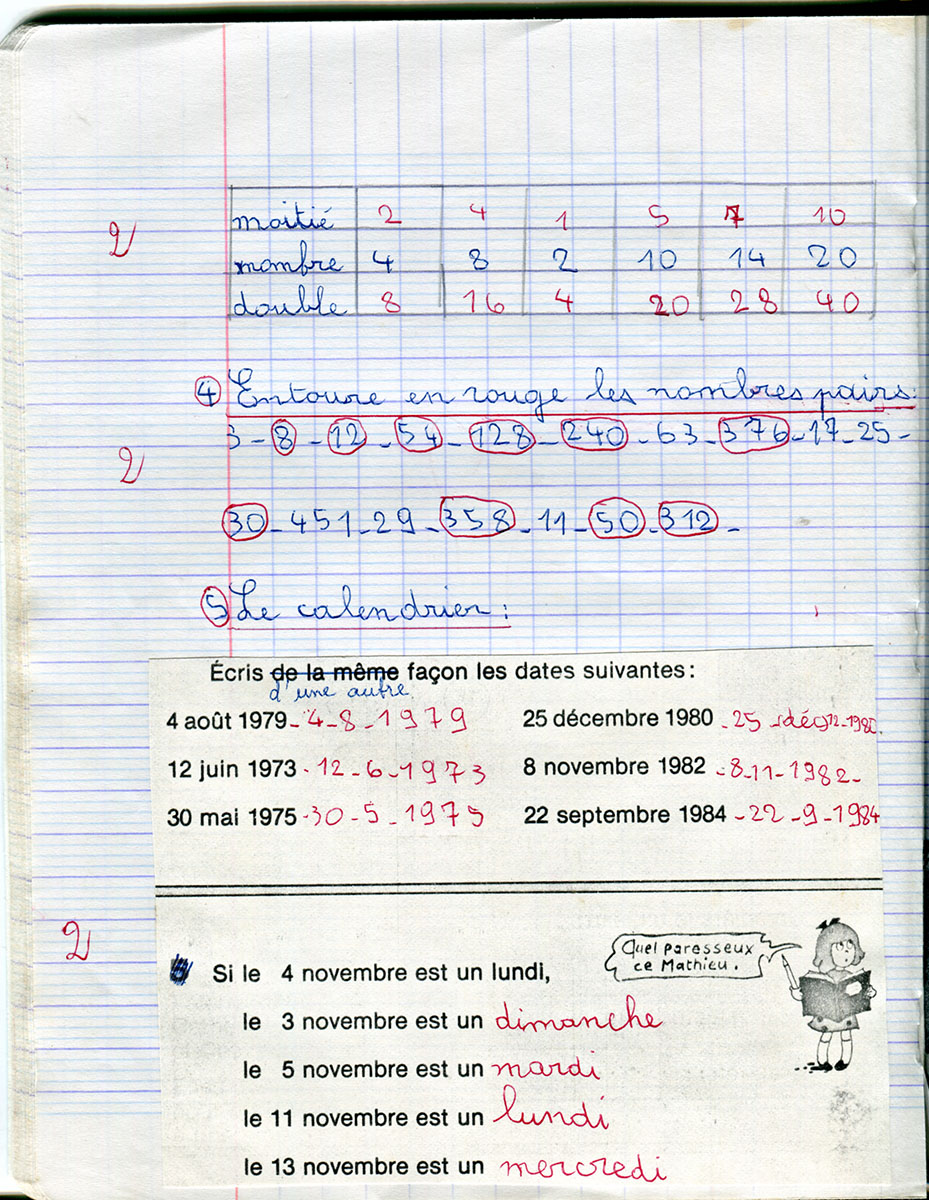 moitié 2 4 1 5 7 10
2
nombre 4 8 2 10 14 20
double 8 16 4 20 28 40
④ Entoure en rouge les nombres pairs:
3 - 8 - 12 - 54 - 128 - 240 - 63 - 376 - 17 - 25 -
2
30 - 451 - 29 - 358 - 11 - 50 - 312 -
⑤ Le calendrier:
Écris de la même façon les dates suivantes:
d'une autre
4 août 1979 - 4 - 8 - 1979 25 décembre 1980 - 25 - 12 - 1980.
12 juin 1973 - 12 - 6 - 1973 8 novembre 1982 - 8 - 11 - 1982 -
30 mai 1975 - 30 - 5 - 1975 22 septembre 1984 - 22 - 9 - 1984
2
Quel paresseux
ce Mathieu.
Si le 4 novembre est un lundi,
le 3 novembre est un dimanche
le 5 novembre est un mardi
le 11 novembre est un lundi
le 13 novembre est un mercredi